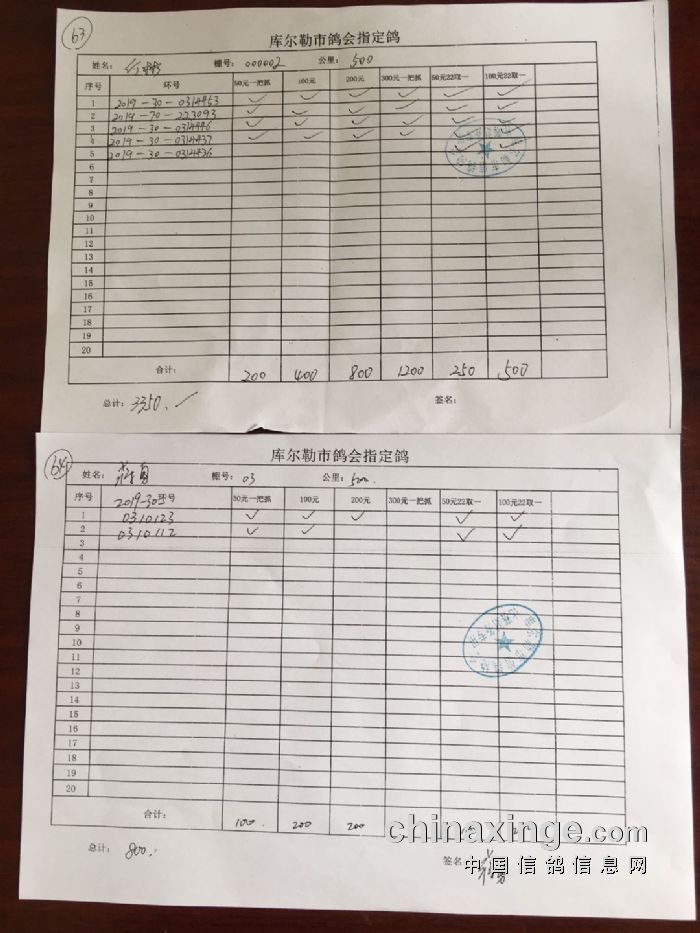 63
库尔勒市鸽会指定鸽
姓名： 棚号：000002 公里：500
序号 环号 50元一把抓 100元 200元 300元一把抓 50元22取一 100元22取一
1 2019-30-0314463 ✓ ✓ ✓ ✓ ✓ ✓
2 2019-70-223093 ✓ ✓ ✓ ✓ ✓ ✓
3 2019-30-0314446 ✓ ✓ ✓ ✓ ✓ ✓
4 2019-30-0314437 ✓ ✓ ✓ ✓ ✓ ✓
5 2019-30-0314436 ✓ ✓
6
7
8
9
10
11
12
13
14
15
16
17
18
19
20
合计： 200 400 800 1200 250 500
总计：3350. ✓ 签名：
64
库尔勒市鸽会指定鸽
姓名： 勇 棚号：03 公里：500.
序号 2019-30环号 50元一把抓 100元 200元 300元一把抓 50元22取一 100元22取一
1 0310123 ✓ ✓ ✓ ✓ ✓
2 0310112 ✓ ✓ ✓ ✓
3
4
5
6
7
8
9
10
11
12
13
14
15
16
17
18
19
20
合计： 100. 200 200
总计： 800. 签名： 勇
chinaxinge.com
中国信鸽信息网